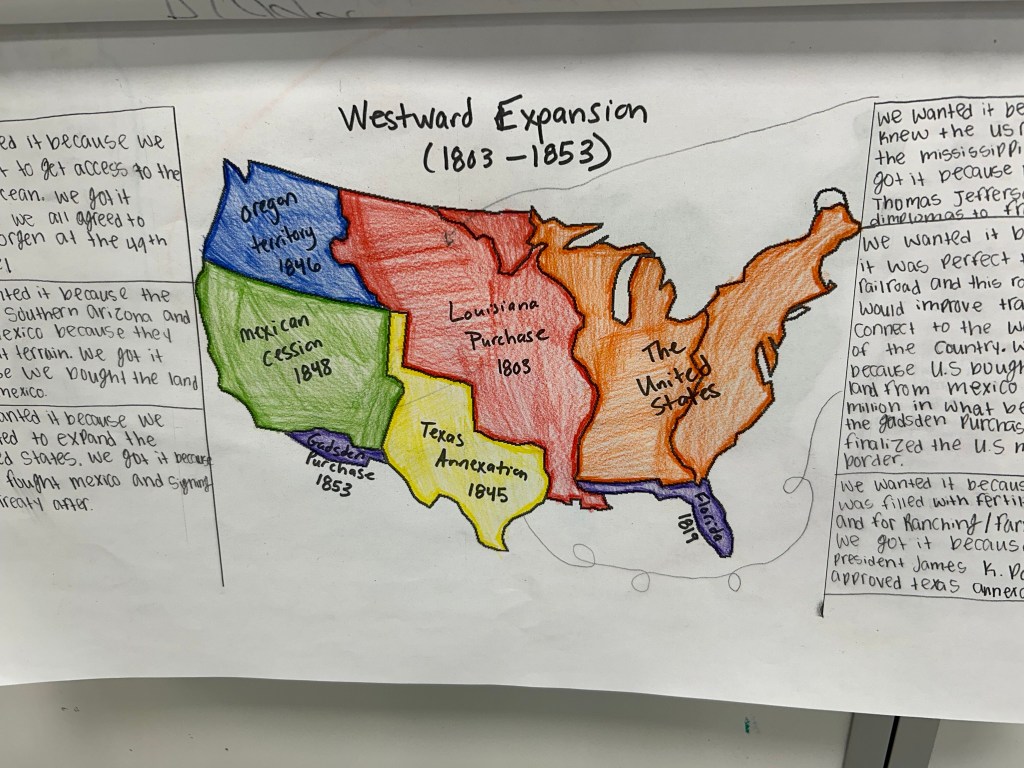 Westward Expansion
(1803 – 1853)
ed it because we
to get access to the
cean. we got it
we all agreed to
at the 49th
nted it because the
Southern Arizona and
exico because they
terrain. We got it
e we bought the land
mexico.
anted it because we
ed to expand the
ed States. We got it because
fought mexico and signing
treaty after.
oregon
territory
1846
mexican
cession
1848
Gadsden
Purchase
1853
Texas
Annexation
1845
Louisiana
Purchase
1803
The
United
States
Florida
1819
we wanted it be
knew the us
the mississippi
got it because
Thomas Jeffers
dimplomas to fr
we wanted it b
it was perfect
railroad and this ro
would improve tra
connect to the w
of the country. W
because U.S bough
land from mexico
million in what be
the gadsden Purchas
finalized the U.S m
border.
we wanted it becaus
was filled with fertil
and for Ranching/far
we got it becaus
president James K. Po
approved texas annexa